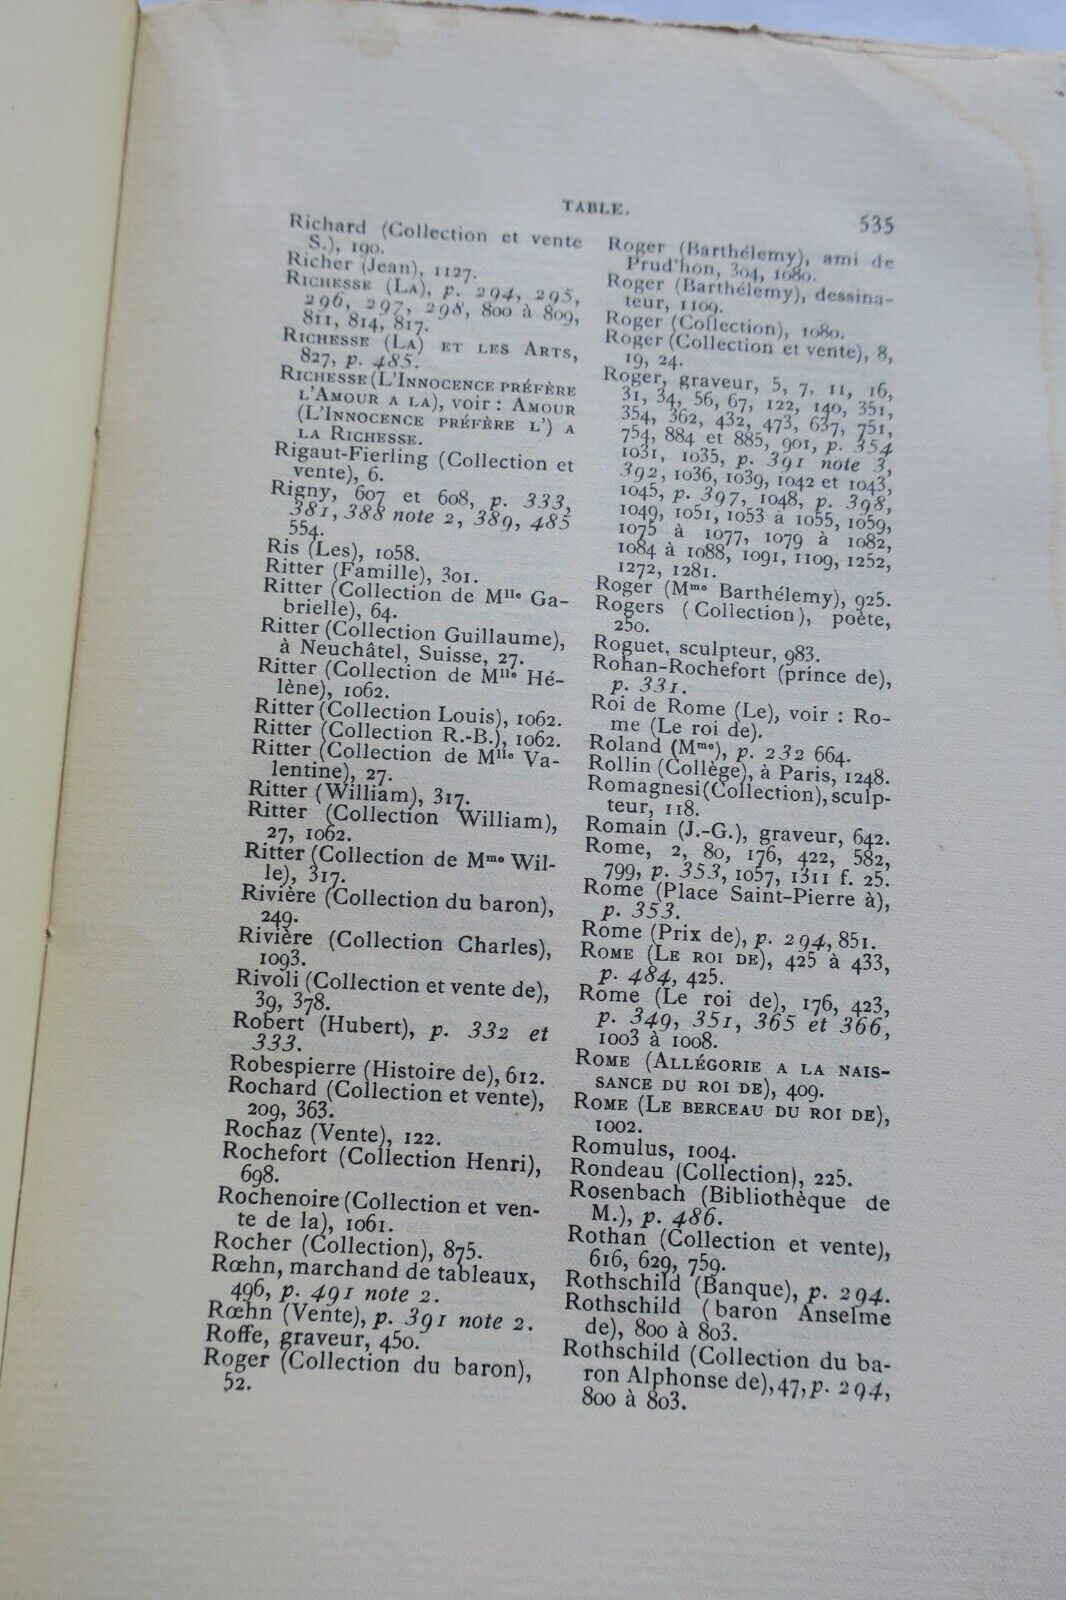 TABLE.
535
Richard (Collection et vente
S.), 190.
Richer (Jean), 1127.
RICHESSE (LA), p. 294, 295,
296, 297, 298, 800 à 809,
811, 814, 817.
RICHESSE (LA) ET LES ARTS,
827, p. 485.
RICHESSE (L'INNOCENCE PRÉFÈRE
L'AMOUR A LA), voir : AMOUR
(L'INNOCENCE PRÉFÈRE L') A
LA RICHESSE.
Rigaut-Fierling (Collection et
vente), 6.
Rigny, 607 et 608, p. 333,
381, 388 note 2, 389, 485
554.
Ris (Les), 1058.
Ritter (Famille), 301.
Ritter (Collection de Mlle Ga-
brielle), 64.
Ritter (Collection Guillaume),
à Neuchâtel, Suisse, 27.
Ritter (Collection de Mlle Hé-
lène), 1062.
Ritter (Collection Louis), 1062.
Ritter (Collection R.-B.), 1062.
Ritter (Collection de Mlle Va-
lentine), 27.
Ritter (William), 317.
Ritter (Collection William),
27, 1062.
Ritter (Collection de Mme Wil-
le), 317.
Rivière (Collection du baron),
249.
Rivière (Collection Charles),
1093.
Rivoli (Collection et vente de),
39, 378.
Robert (Hubert), p. 332 et
333.
Robespierre (Histoire de), 612.
Rochard (Collection et vente),
209, 363.
Rochaz (Vente), 122.
Rochefort (Collection Henri),
698.
Rochenoire (Collection et ven-
te de la), 1061.
Rocher (Collection), 875.
Rœhn, marchand de tableaux,
496, p. 491 note 2.
Rœhn (Vente), p. 391 note 2.
Roffe, graveur, 450.
Roger (Collection du baron),
52.
Roger (Barthélemy), ami de
Prud'hon, 304, 1080.
Roger (Barthélemy), dessina-
teur, 1109.
Roger (Collection), 1080.
Roger (Collection et vente), 8,
19, 24.
Roger, graveur, 5, 7, 11, 16,
31, 34, 56, 67, 122, 140, 351,
354, 362, 432, 473, 637, 751,
754, 884 et 885, 901, p. 354
1031, 1035, p. 391 note 3,
392, 1036, 1039, 1042 et 1043,
1045, p. 397, 1048, p. 398,
1049, 1051, 1053 à 1055, 1059,
1075 à 1077, 1079 à 1082,
1084 à 1088, 1091, 1109, 1252,
1272, 1281.
Roger (Mme Barthélemy), 925.
Rogers (Collection), poète,
250.
Roguet, sculpteur, 983.
Rohan-Rochefort (prince de),
p. 331.
Roi de Rome (Le), voir : Ro-
me (Le roi de).
Roland (Mme), p. 232 664.
Rollin (Collège), à Paris, 1248.
Romagnesi (Collection), sculp-
teur, 118.
Romain (J.-G.), graveur, 642.
Rome, 2, 80, 176, 422, 582,
799, p. 353, 1057, 1311 f. 25.
Rome (Place Saint-Pierre à),
p. 353.
Rome (Prix de), p. 294, 851.
ROME (LE ROI DE), 425 à 433,
p. 484, 425.
Rome (Le roi de), 176, 423,
p. 349, 351, 365 et 366,
1003 à 1008.
ROME (ALLÉGORIE A LA NAIS-
SANCE DU ROI DE), 409.
ROME (LE BERCEAU DU ROI DE),
1002.
Romulus, 1004.
Rondeau (Collection), 225.
Rosenbach (Bibliothèque de
M.), p. 486.
Rothan (Collection et vente),
616, 629, 759.
Rothschild (Banque), p. 294.
Rothschild (baron Anselme
de), 800 à 803.
Rothschild (Collection du ba-
ron Alphonse de), 47, p. 294,
800 à 803.